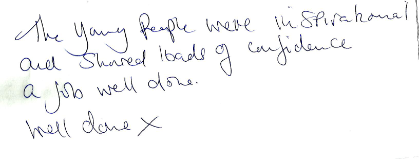 The Young People were inspirational
and shared loads of confidence
a job well done.
Well done X